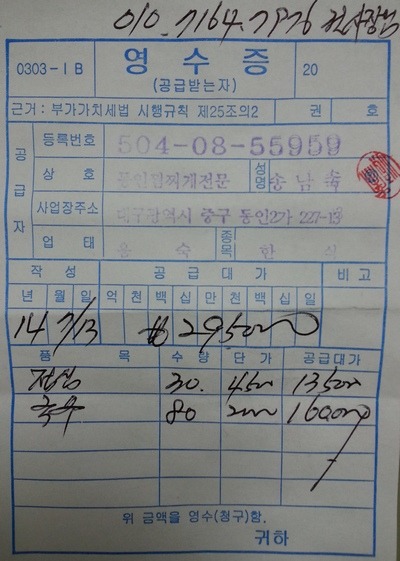 010. 7164. 7976
0303-1B 영 수 증 20
(공급받는자)
근거: 부가가치세법 시행규칙 제25조의2 권 호
공급자
등록번호 504-08-55959
상 호 동인찜찌개전문 성명 송남숙
사업장주소 대구광역시 중구 동인2가 227-13
업 태 음 숙 종목 한 식
작 성 공 급 대 가 비 고
년 월 일 억 천 백 십 만 천 백 십 일
14 7/13 ₩295000
품 목 수 량 단 가 공급대가
점심 30. 4500 135000
국수 80 2000 160000
위 금액을 영수(청구)함.
귀하